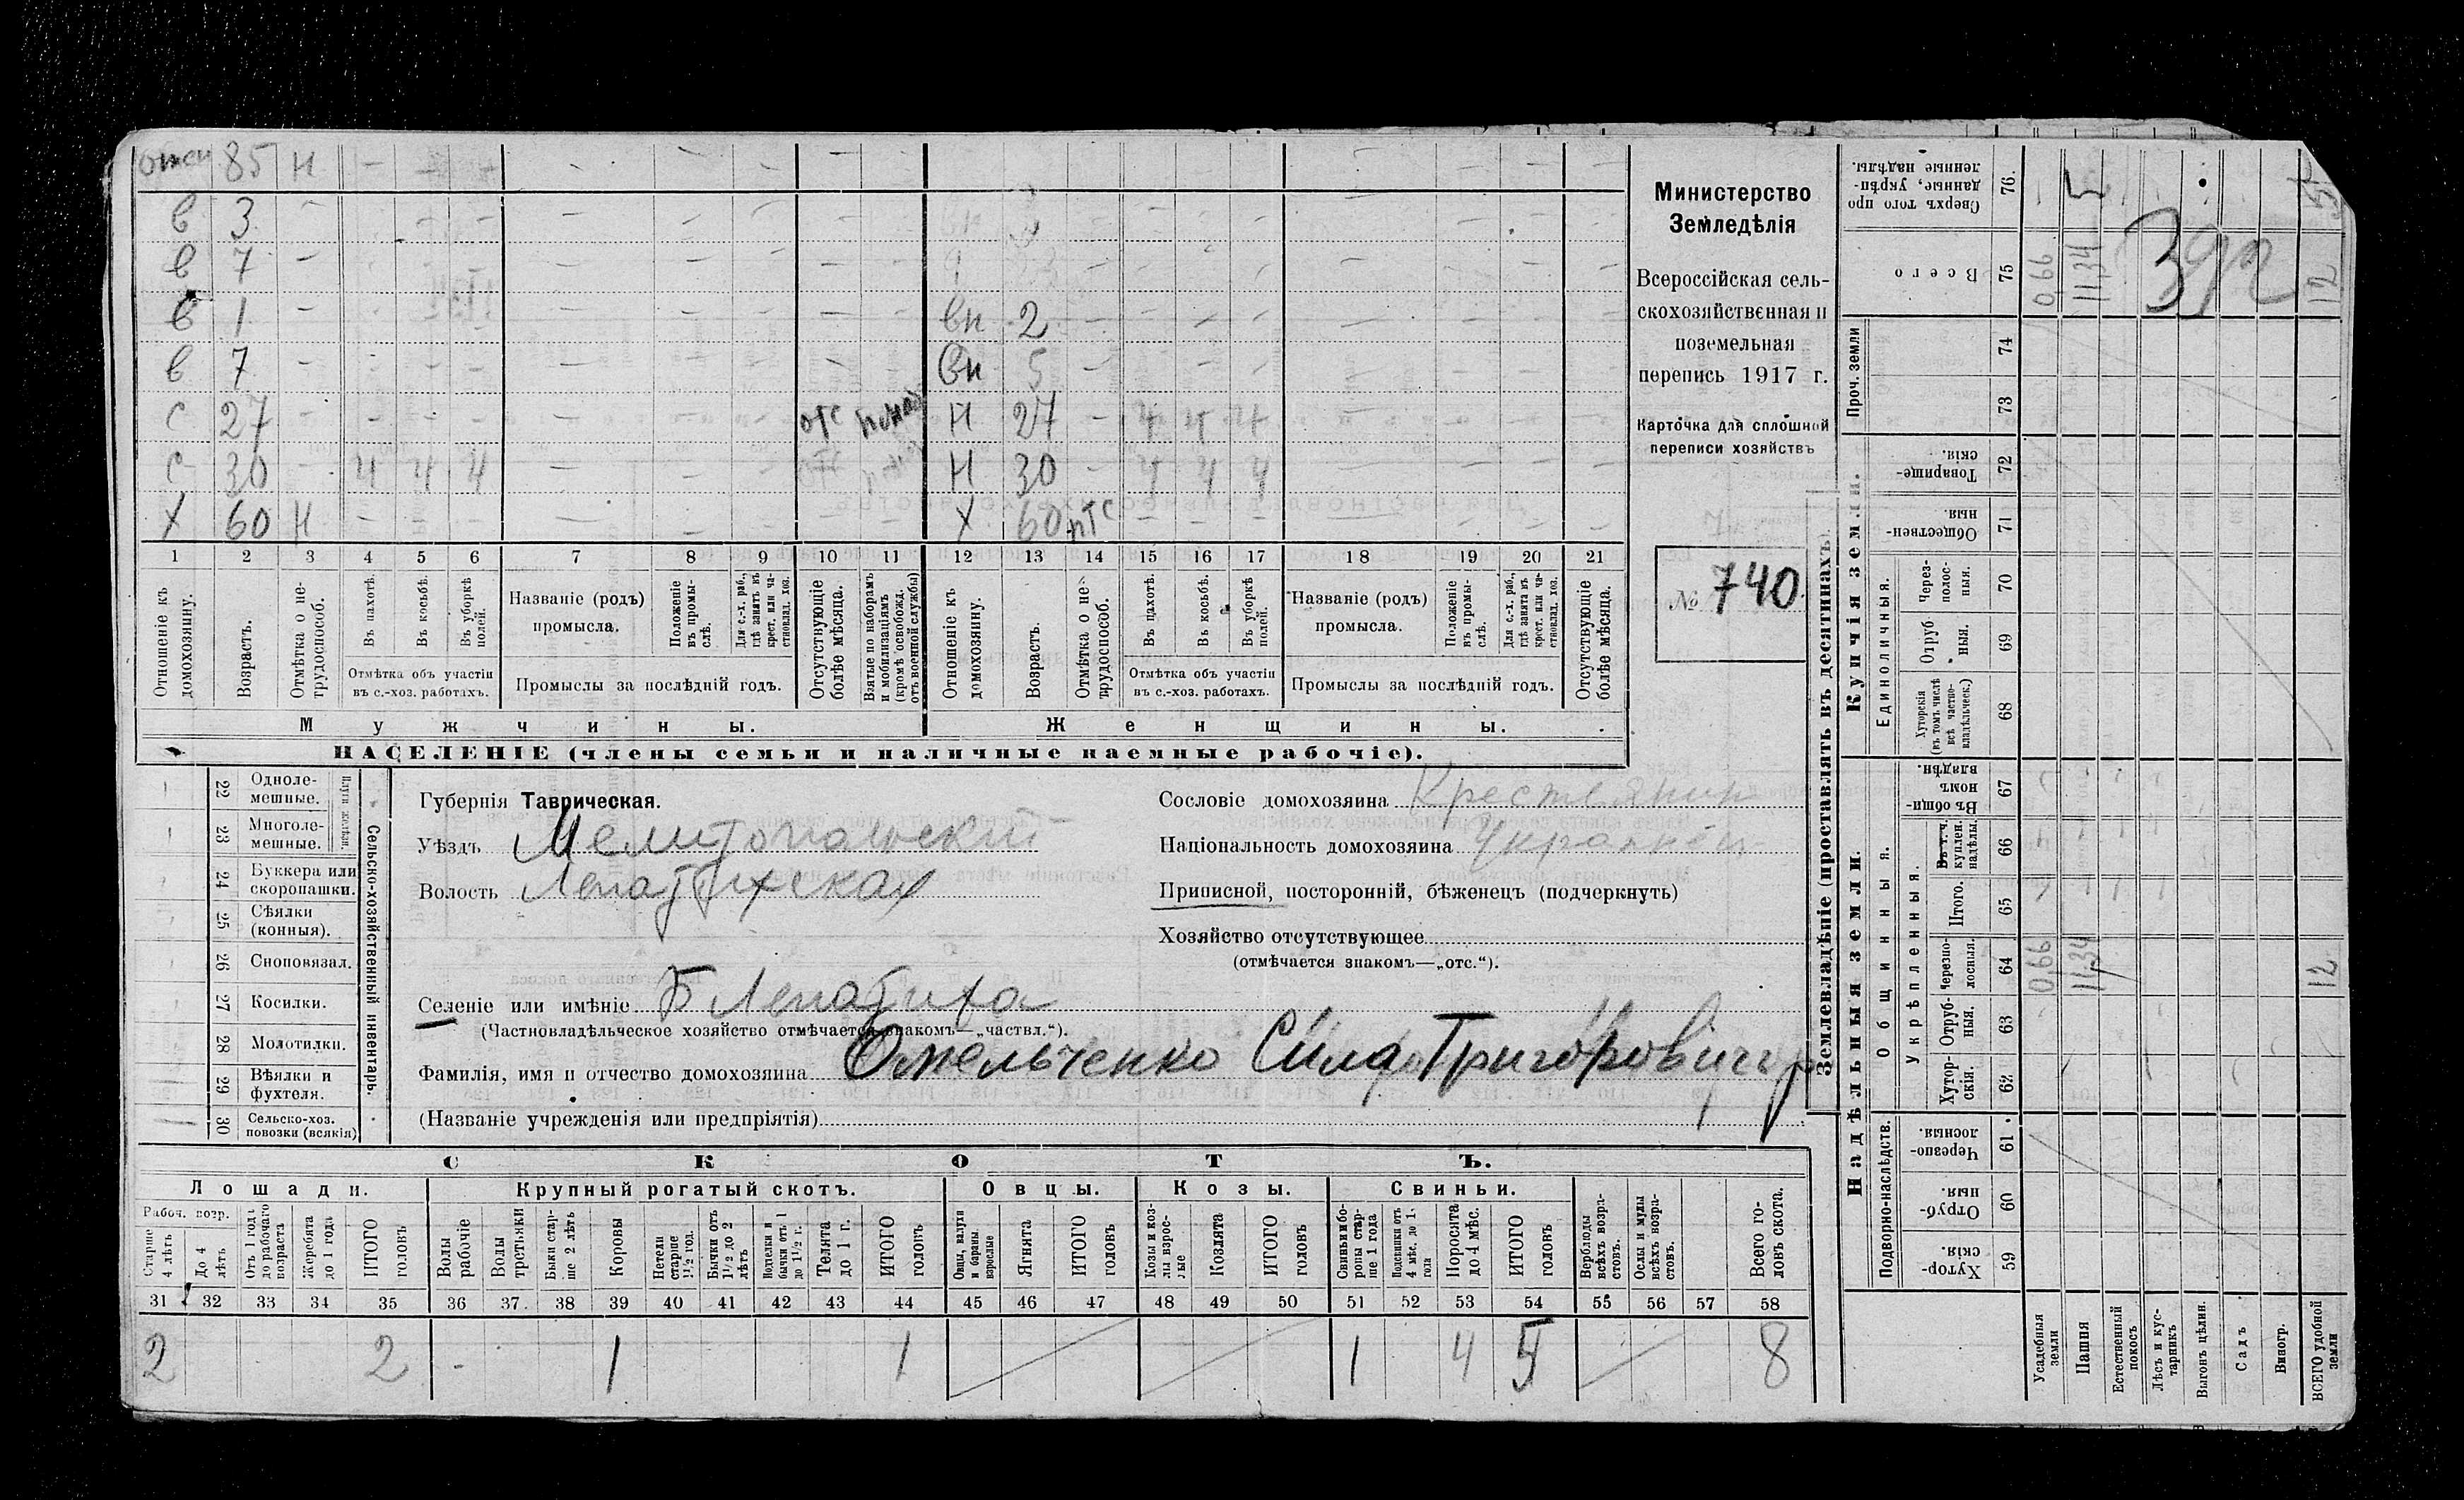 отец 85 н
в 3
в 7
в 1 вн 2
в 7 вн 5
с 27 отс Н 27 4 4 4
с 30 4 4 4 Н 30 4 4 4
Х 60 Н Х 60 отс
1 2 3 4 5 6 7 8 9 10 11 12 13 14 15 16 17 18 19 20 21
Отношеніе къ домохозяину.
Возрастъ.
Отмѣтка о не-трудоспособ.
Въ пахотѣ.
Въ косьбѣ.
Въ уборкѣ полей.
Отмѣтка объ участіи въ с.-хоз. работахъ.
Названіе (родъ) промысла.
Положеніе въ промы-слѣ.
Для с.-х. раб., гдѣ занятъ въ крест. или ча-стновлад. хоз.
Промыслы за послѣдній годъ.
Отсутствующіе болѣе мѣсяца.
Взятые по наборамъ и мобилизаціямъ (кромѣ освобожд. отъ военной службы)
Отношеніе къ домохозяину.
Возрастъ.
Отмѣтка о не-трудоспособ.
Въ пахотѣ.
Въ косьбѣ.
Въ уборкѣ полей.
Отмѣтка объ участіи въ с.-хоз. работахъ.
Названіе (родъ) промысла.
Положеніе въ промы-слѣ.
Для с.-х. раб., гдѣ занята въ крест. или ча-стновлад. хоз.
Промыслы за послѣдній годъ.
Отсутствующіе болѣе мѣсяца.
Мужчины. Женщины.
НАСЕЛЕНІЕ (члены семьи и наличные наемные рабочіе).
Министерство
Земледѣлія
Всероссійская сель-
скохозяйственная и
поземельная
перепись 1917 г.
Карточка для сплошной
переписи хозяйствъ
№ 740
Сельско-хозяйственный инвентарь.
Плуги желѣзн.
22 Одноле-мешные.
23 Многоле-мешные.
24 Буккера или скоропашки.
25 Сѣялки (конныя).
26 Сноповязал.
27 Косилки.
28 Молотилки.
29 Вѣялки и фухтеля.
30 Сельско-хоз. повозки (всякія) 1
Губернія Таврическая.
Уѣздъ Мелитопольский
Волость Лепатихская
Селеніе или имѣніе Б Лепатиха
(Частновладѣльческое хозяйство отмѣчается знакомъ—„частвл.“).
Фамилія, имя и отчество домохозяина Омельченко Сила Григорович
(Названіе учрежденія или предпріятія)
Сословіе домохозяина Крестьянин
Національность домохозяина Украинец
Приписной, посторонній, бѣженецъ (подчеркнуть)
Хозяйство отсутствующее
(отмѣчается знакомъ—„отс.“).
СКОТЪ.
Лошади. Крупный рогатый скотъ. Овцы. Козы. Свиньи.
Рабоч. возр.
Старше 4 лѣтъ
До 4 лѣтъ
Отъ 1 года до рабочаго возраста
Жеребята до 1 года
ИТОГО головъ
Волы рабочіе
Волы третьяки
Быки стар-ше 2 лѣтъ
Коровы
Нетели старше 1½ год.
Бычки отъ 1½ до 2 лѣтъ
Подтелки и бычки отъ 1 до 1½ г.
Телята до 1 г.
ИТОГО головъ
Овцы, валухи и бараны взрослые
Ягнята
ИТОГО головъ
Козы и коз-лы взрос-лые
Козлята
ИТОГО головъ
Свиньи и бо-ровы стар-ше 1 года
Подсвинки отъ 4 мѣс. до 1-года
Поросята до 4 мѣс.
ИТОГО головъ
Верблюды всѣхъ возра-стовъ.
Ослы и мулы всѣхъ возра-стовъ.
Всего го-ловъ скота.
31 32 33 34 35 36 37 38 39 40 41 42 43 44 45 46 47 48 49 50 51 52 53 54 55 56 57 58
2 2 - 1 1 1 4 5 8
Землевладѣніе (проставлять въ десятинахъ).
Надѣльныя земли. Купчія земли. Проч. земли
Подворно-наслѣдств.
Общинныя.
Укрѣпленныя.
Единоличныя.
Хутор-скія. 59
Отруб-ныя. 60
Черезпо-лосныя. 61
Хутор-скія. 62
Отруб-ныя. 63
Черезпо-лосныя. 64 0,66 11,34 12
Итого. 65
Въ т. ч. куплен. надѣлы. 66
Въ общин-номъ владѣн. 67
Хуторскія (въ томъ числѣ всѣ частно-владѣльческ.) 68
Отруб-ныя. 69
Через-полос-ныя. 70
Обществен-ныя. 71
Товарище-скія. 72
73
74
Всего 75 0,66 11,34 12
Сверхъ того про-данные, укрѣп-ленные надѣлы. 76. 5
Усадебныя земли
Пашня
Естественный покосъ
Лѣсъ и кус-тарникъ
Выгонъ цѣлин.
Садъ
Виногр.
ВСЕГО удобной земли